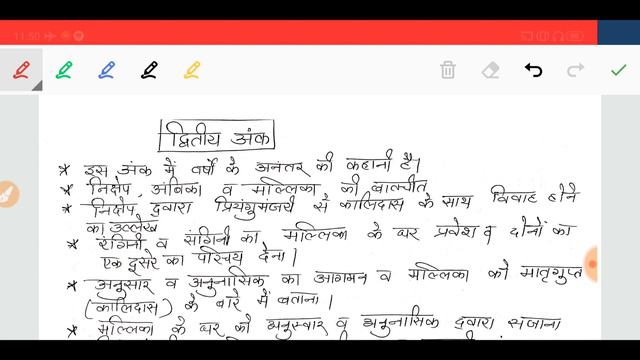 11:50
द्वितीय अंक
* इस अंक में वर्षों के अनंतर की कहानी है।
* निक्षेप, अंबिका व मल्लिका की बातचीत
* निक्षेप द्वारा प्रियंगुमंजरी से कालिदास के साथ विवाह होने
का उल्लेख
* रंगिनी व संगिनी का मल्लिका के घर प्रवेश व दोनों का
एक दुसरे का परिचय देना।
* अनुसार व अनुनासिक का आगमन व मल्लिका को मातृगुप्त
(कालिदास) के बारे में बताना।
* मल्लिका के घर को अनुस्वार व अनुनासिक द्वारा सजाना